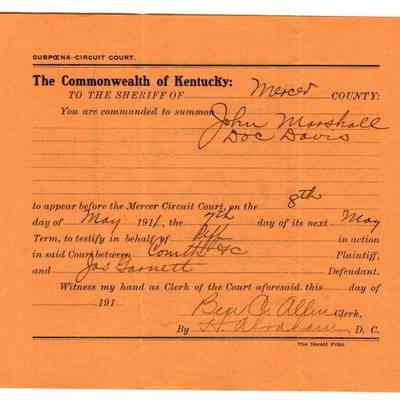 SUBPŒNA-CIRCUIT COURT.
The Commonwealth of Kentucky:
TO THE SHERIFF OF Mercer COUNTY:
You are commanded to summon John Marshall
Doc Davis
to appear before the Mercer Circuit Court, on the 8th
day of May 1911, the 7th day of its next May
Term, to testify in behalf of Dft in action
in said Court between Comth &c Plaintiff,
and Jas Garnett Defendant.
Witness my hand as Clerk of the Court aforesaid, this day of
191
Ben C. Allin Clerk,
By H. Abraham, D. C.
The Herald Print